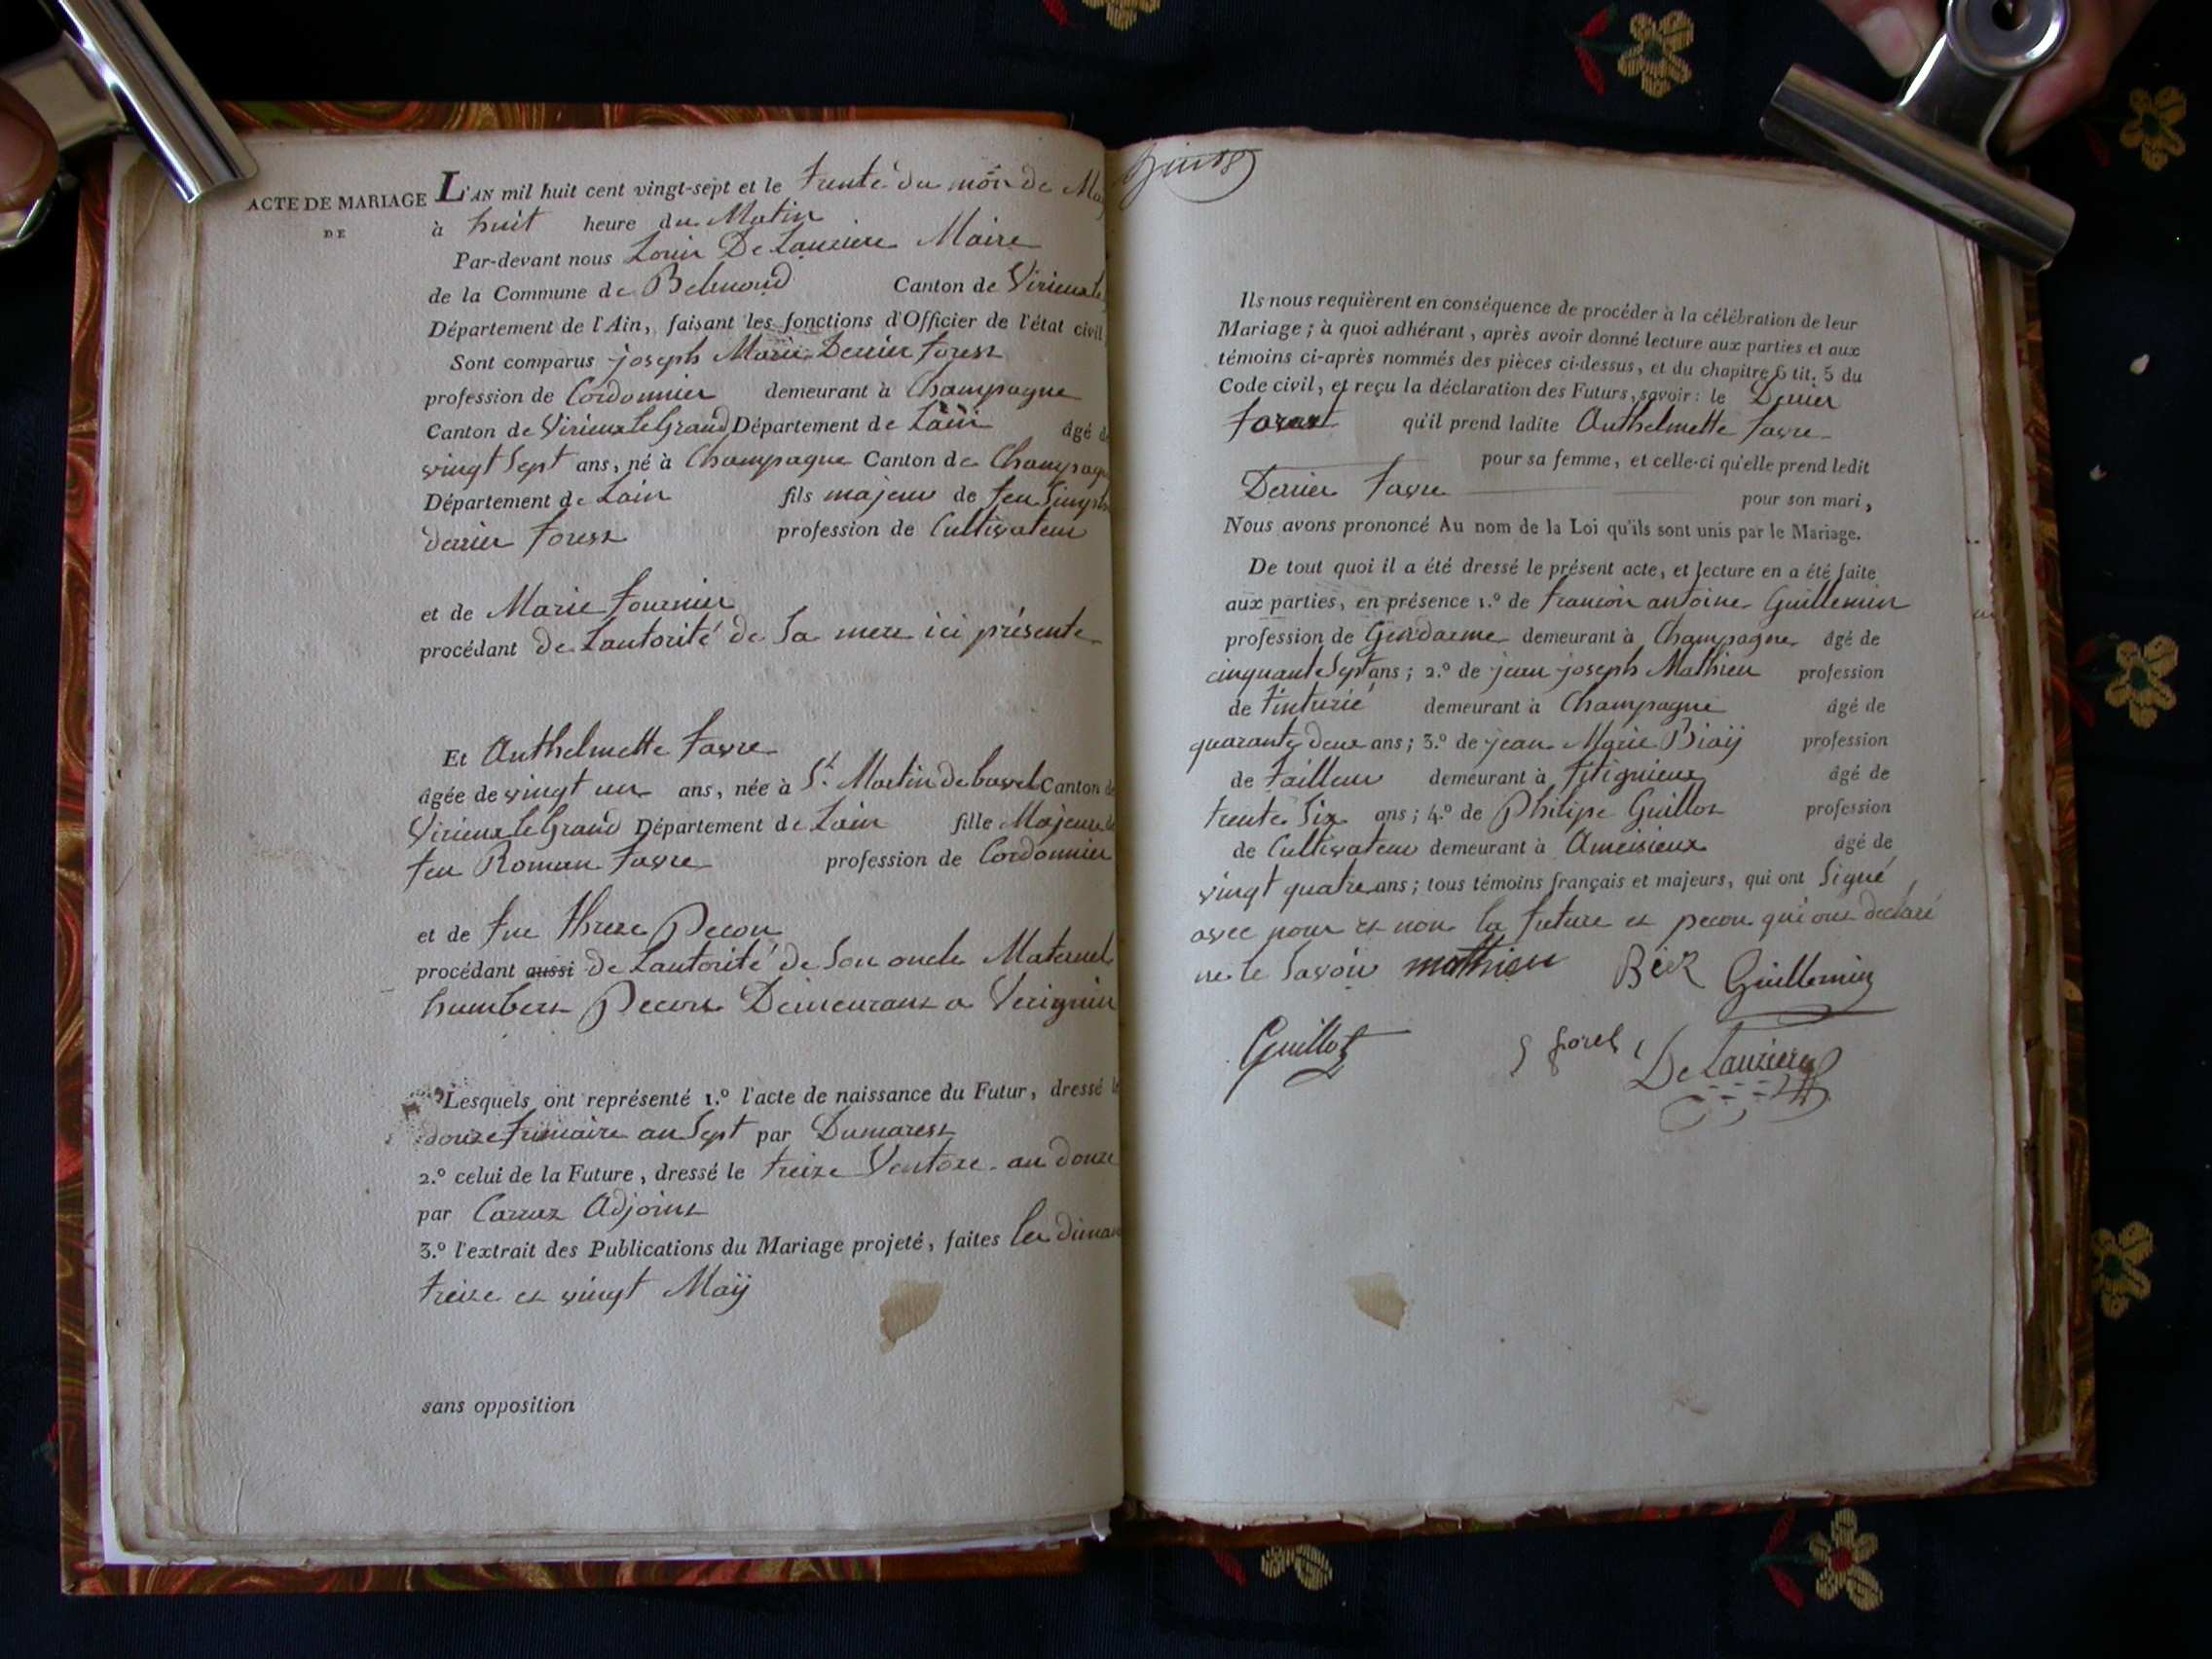 ACTE DE MARIAGE
DE
L'AN mil huit cent vingt-sept et le trente du mois de May
à huit heure du Matin
Par-devant nous Louis De Lauziere Maire
de la Commune de Belmond Canton de Virieux le
Département de l'Ain, faisant les fonctions d'Officier de l'état civil
Sont comparus joseph Marie Derrier forest
profession de Cordonnier demeurant à Champagne
Canton de Virieux Le Grand Département de Lain âgé de
vingt Sept ans, né à Champagne Canton de Champagne
Département de Lain fils majeur de feu
derrier forest profession de Cultivateur
et de Marie fournier
procédant de Lautorité de Sa mere ici présente
Et Anthelmette favre
âgée de vingt un ans, née à St. Martin de bavel Canton de
Virieux Le Grand Département de Lain fille Majeure de
feu Roman favre profession de Cordonnier
et de fue threze Pecon
procédant aussi de Lautorité de Son oncle Maternel
humbert Pecon Demeurant a Verignin
Lesquels ont représenté 1.º l'acte de naissance du Futur, dressé le
douze frimaire an Sept par Dumarest
2.º celui de la Future, dressé le treize Ventoze an douze
par Carraz Adjoint
3.º l'extrait des Publications du Mariage projeté, faites les diman
treize et vingt Maÿ
sans opposition
Ils nous requièrent en conséquence de procéder à la célébration de leur
Mariage ; à quoi adhérant, après avoir donné lecture aux parties et aux
témoins ci-après nommés des pièces ci-dessus, et du chapitre 6 tit. 5 du
Code civil, et reçu la déclaration des Futurs, savoir : le Derrier
forest qu'il prend ladite Anthelmette favre
pour sa femme, et celle-ci qu'elle prend ledit
Derrier favre pour son mari,
Nous avons prononcé Au nom de la Loi qu'ils sont unis par le Mariage.
De tout quoi il a été dressé le présent acte, et lecture en a été faite
aux parties, en présence 1.º de francois antoine Guillemin
profession de Gendarme demeurant à Champagne âgé de
cinquante Sept ans ; 2.º de jean joseph Mathieu profession
de tinturié demeurant à Champagne âgé de
quarante deux ans ; 3.º de jean Marie Biaÿ profession
de tailleur demeurant à fitignieux âgé de
trente Six ans ; 4.º de Philipe Guillot profession
de Cultivateur demeurant à Ameisieux âgé de
vingt quatre ans ; tous témoins français et majeurs, qui ont Signé
avec nous et non la future et pecon qui ont declaré
ne le Savoir mathieu Guillemin
Guillot forest De Lauziere